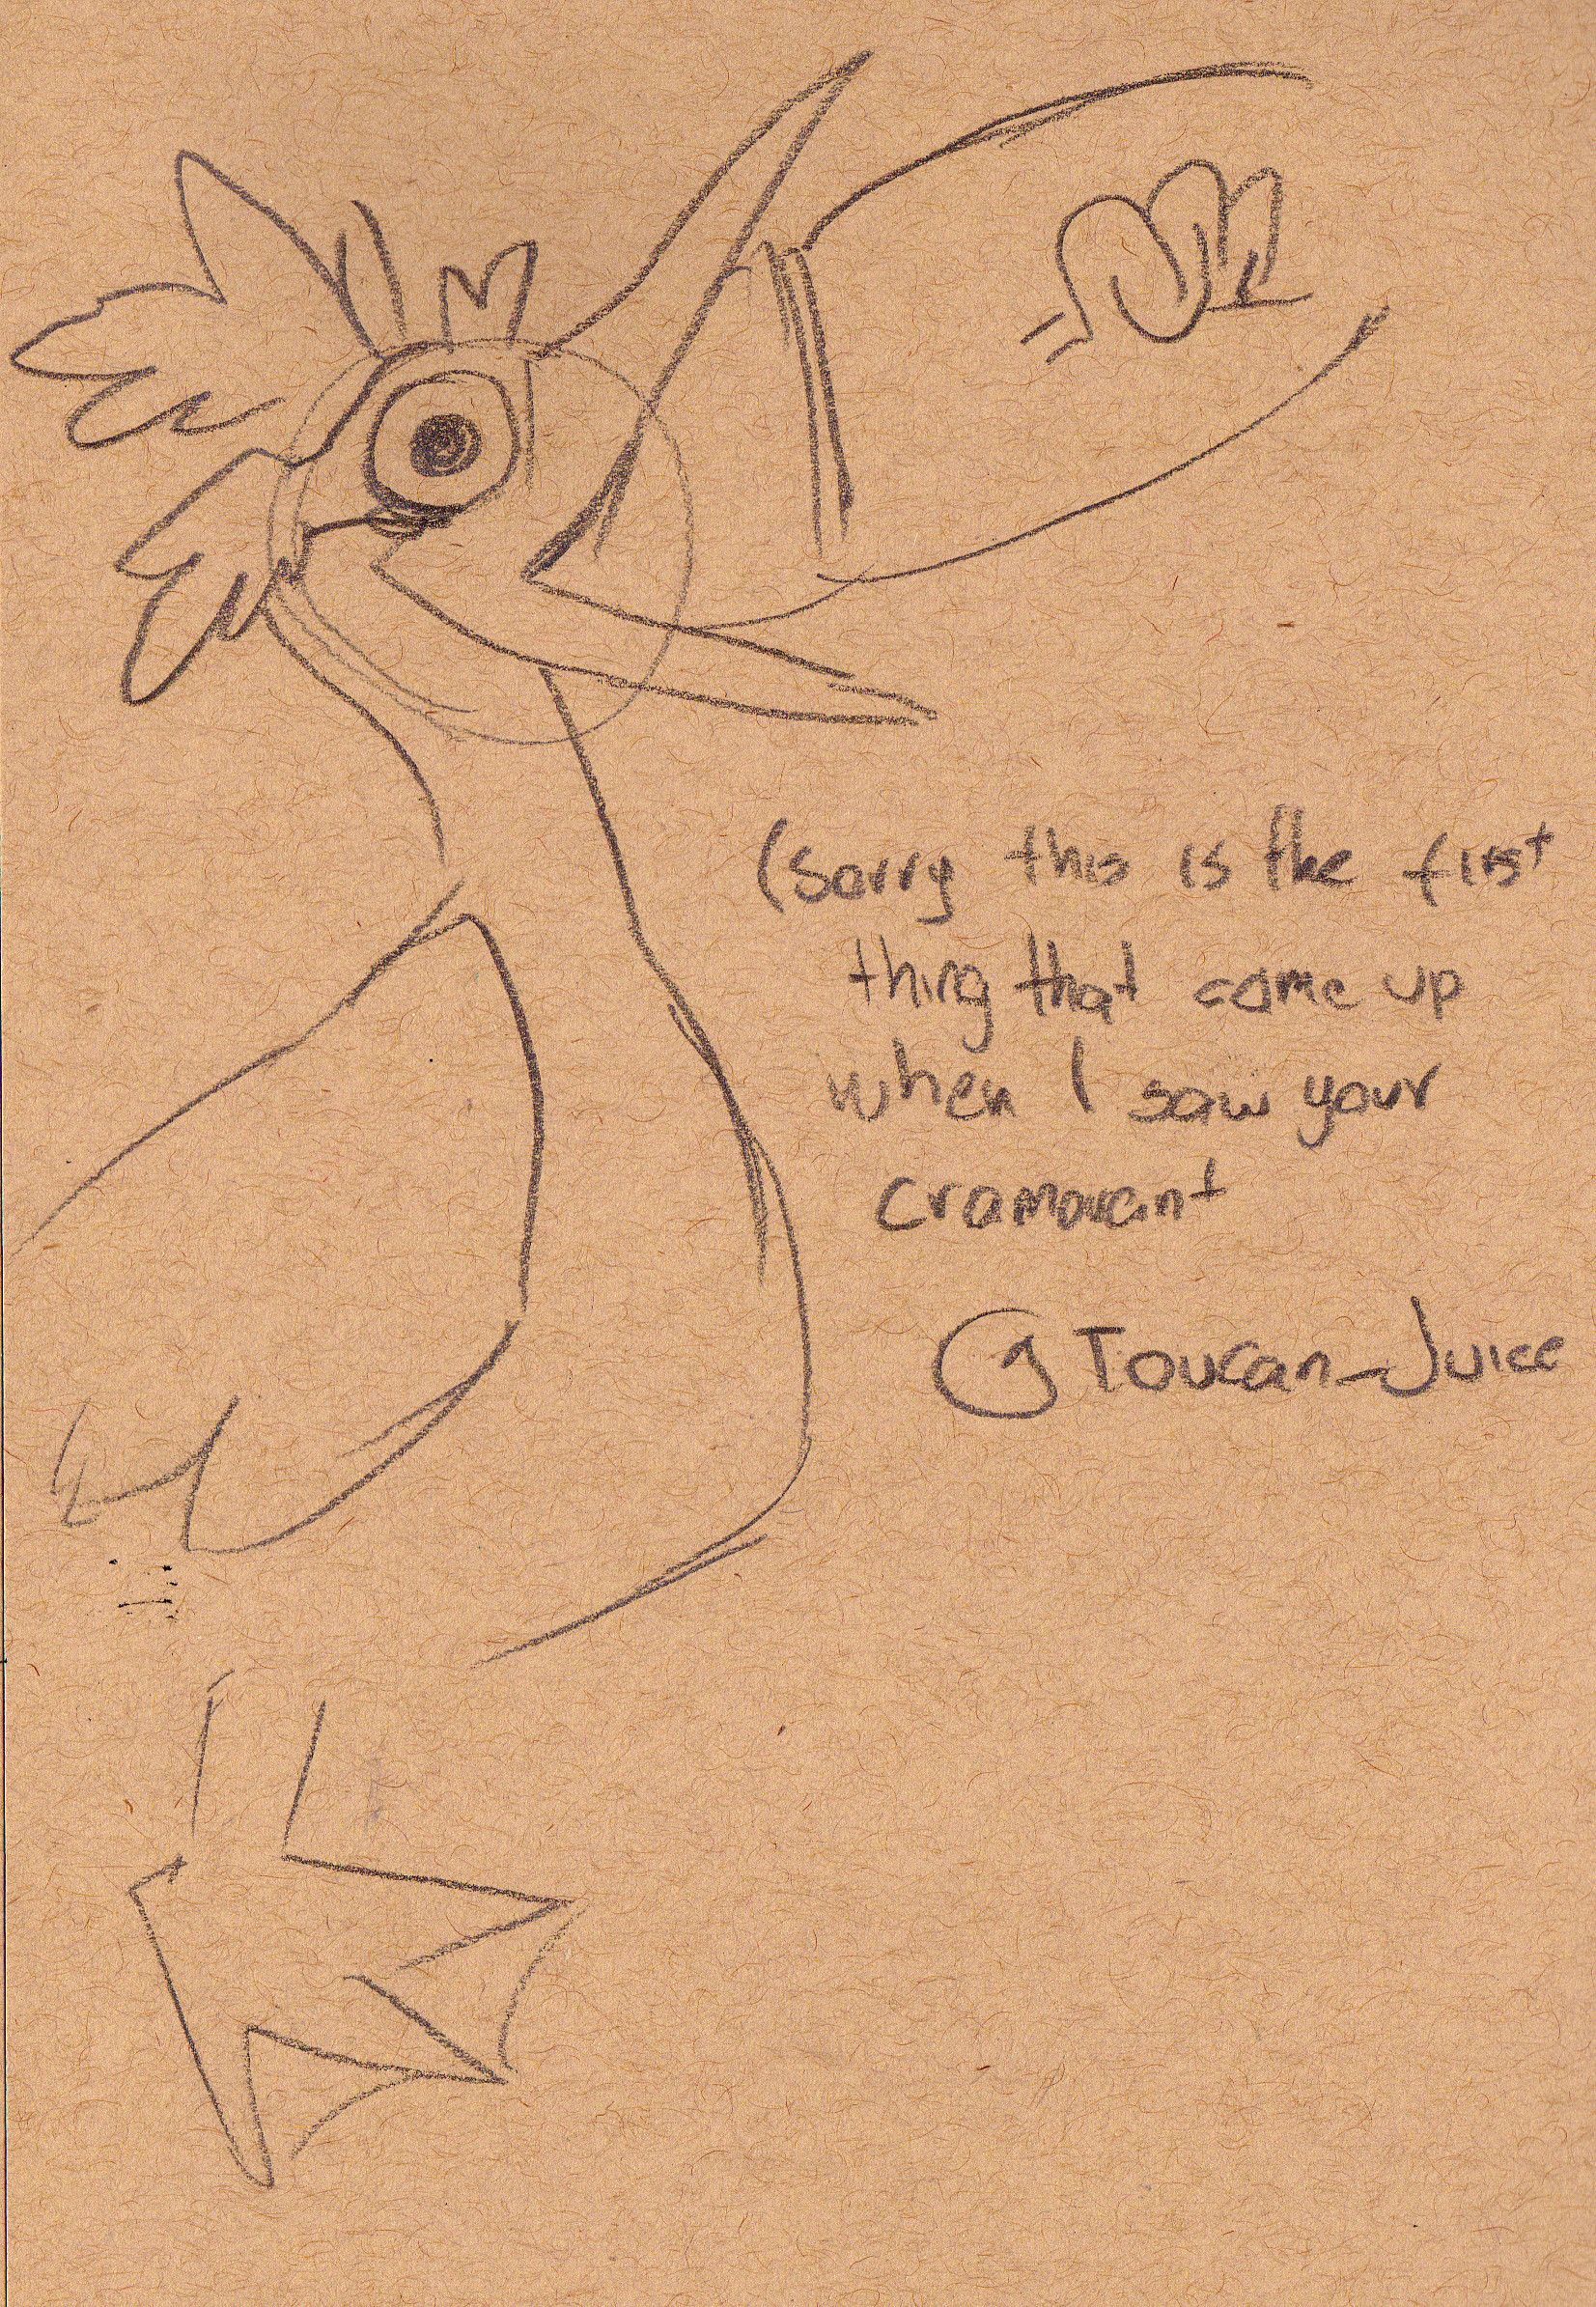 (Sorry this is the first
thing that came up
when I saw your
cramorant
@Toucan_Juice